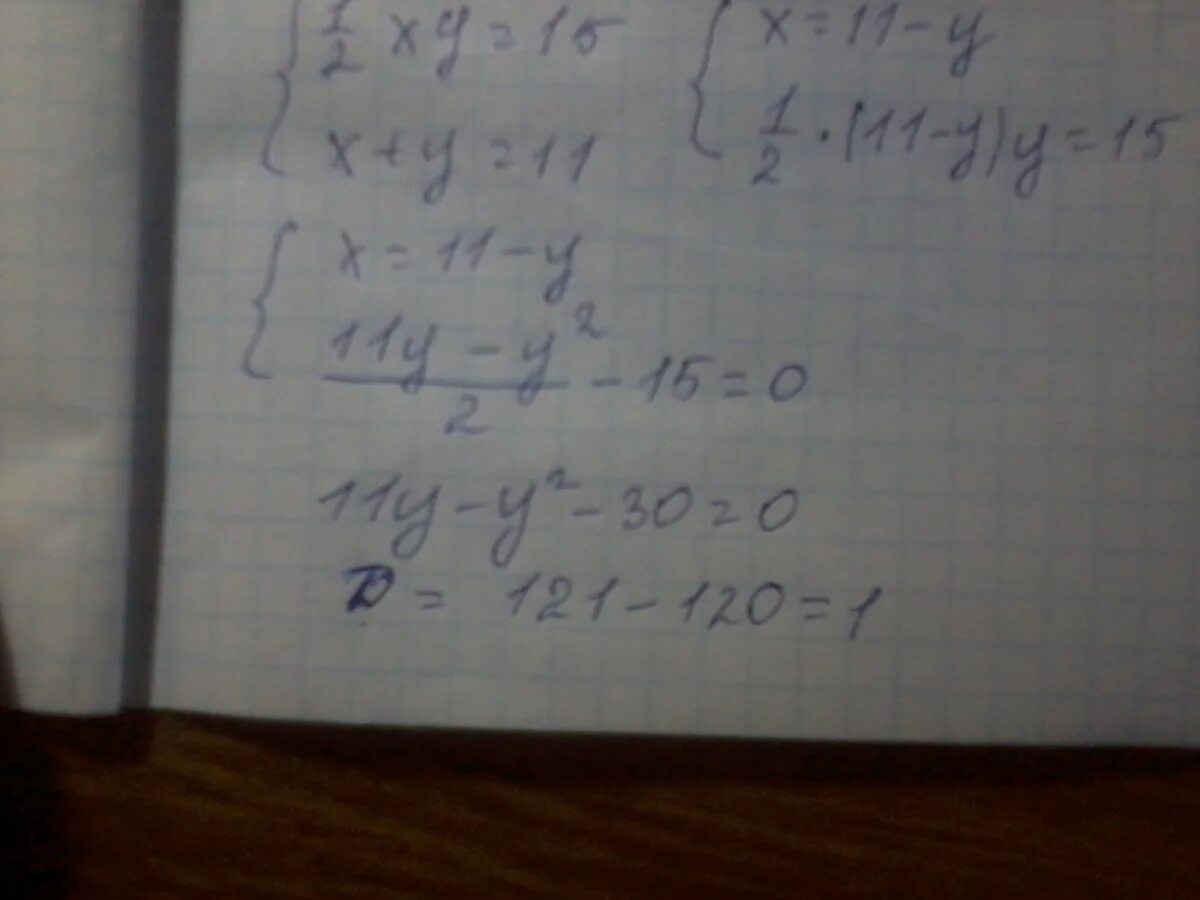 1/2 xy = 15
x + y = 11
x = 11 - y
1/2 · (11 - y)y = 15
x = 11 - y
(11y - y²)/2 - 15 = 0
11y - y² - 30 = 0
D = 121 - 120 = 1